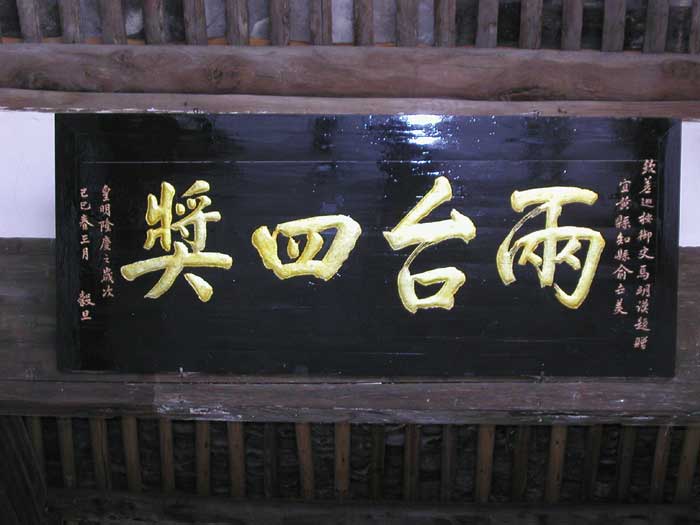 欽差巡按御史馬明謨題贈
宜黃縣知縣俞云美
兩台四獎
皇明隆慶之歲次
己巳春三月 穀旦